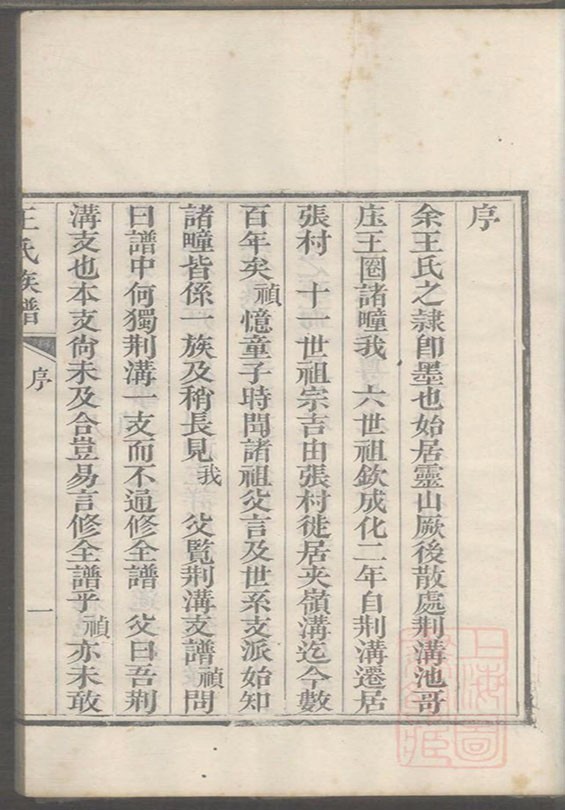 序
余王氏之隷卽墨也始居靈山厥後散處荆溝池哥
庒王圈諸疃我　六世祖欽成化二年自荆溝遷居
張村　十一世祖宗吉由張村徙居夾嶺溝迄今數
百年矣禎憶童子時聞諸祖父言及世系支派始知
諸疃皆係一族及稍長見我　父覧荆溝支譜禎問
曰譜中何獨荆溝一支而不通修全譜　父曰吾荆
溝支也本支尙未及合豈易言修全譜乎禎亦未敢
王氏族譜　序　一
上海圖書館藏